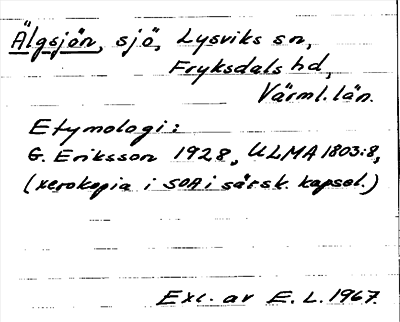 Älgsjön, sjö, Lysviks sn,
Fryksdals hd,
Värml. län.
Etymologi:
G. Eriksson 1928, ULMA 1803:8,
(xerokopia i SOA i särsk. kapsel.)
Exc. av E. L. 1967.